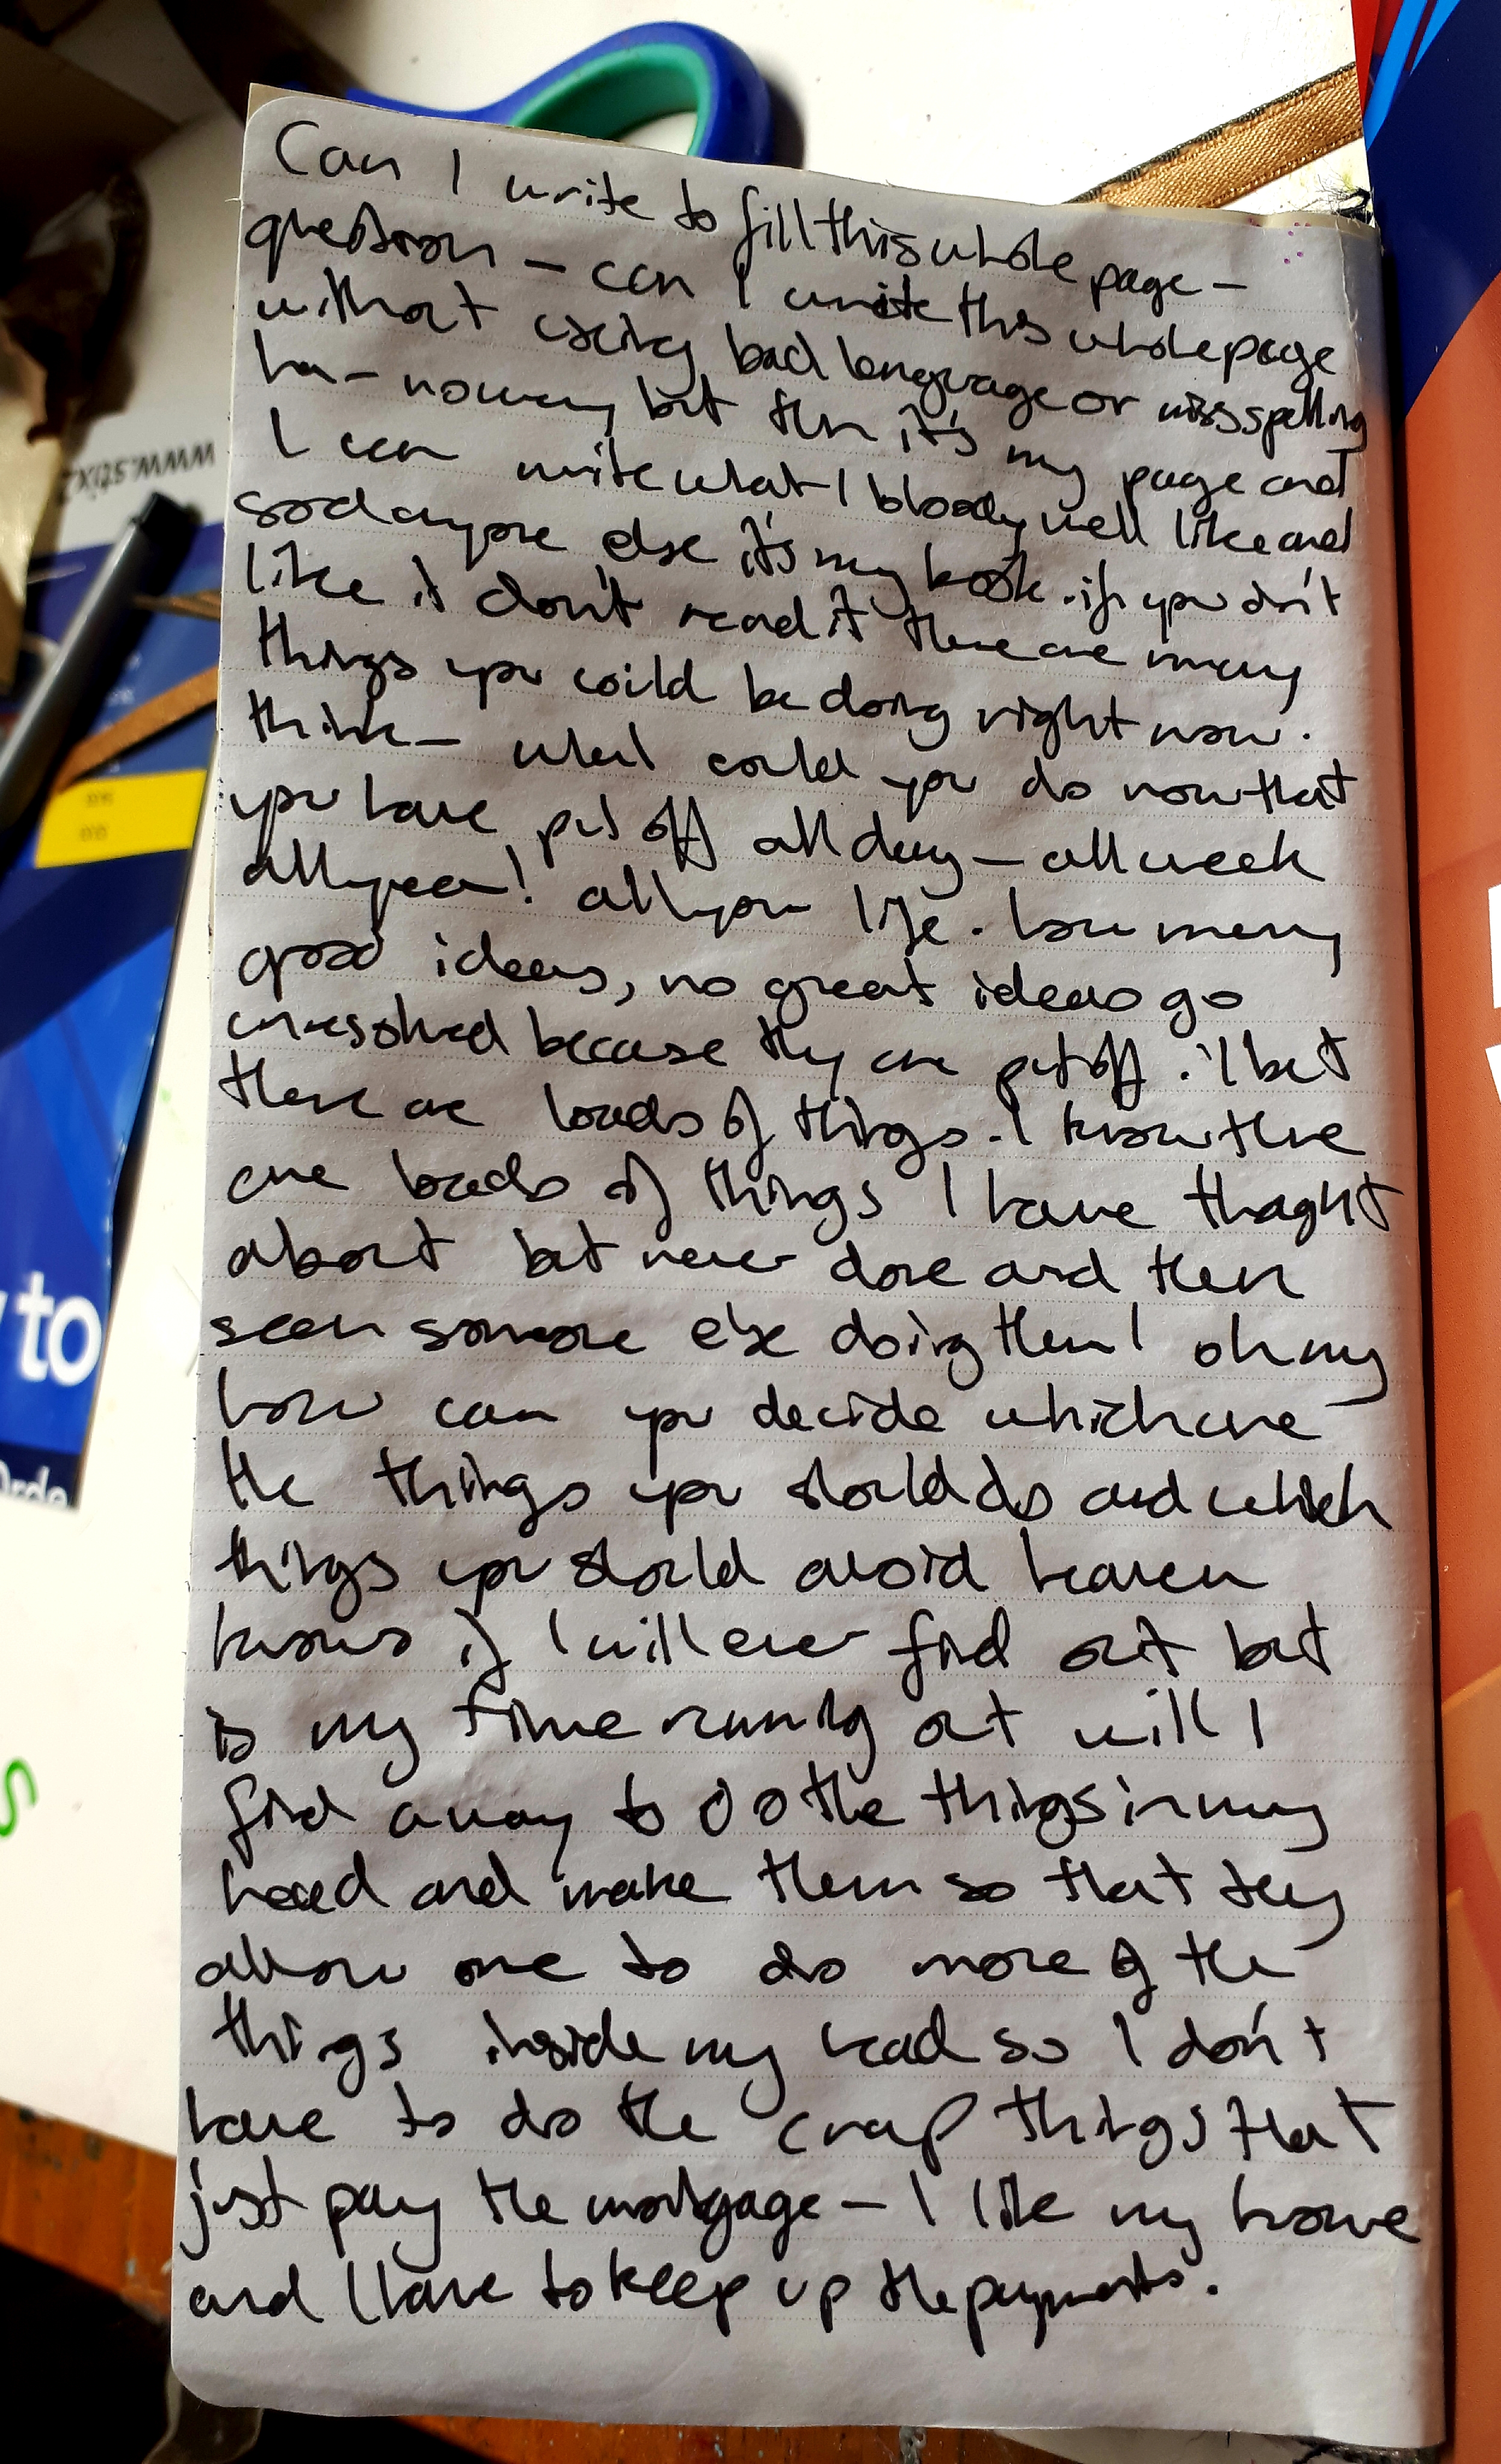 Can I write to fill this whole page -
question - can I write this whole page
without using bad language or missspelling
ha - noway but then it's my page and
I can write what I bloody well like and
sod anyone else it's my book. if you don't
like it don't read it there are many
things you could be doing right now.
think - what could you do now that
you have put off all day - all week
all year! all your life. how many
good ideas, no great ideas go
unresolved because they are put off. I bet
there are loads of things. I know there
are loads of things I have thought
about but never done and then
seen someone else doing them! oh my
how can you decide which are
the things you should do and which
things you should avoid heaven
knows if I will ever find out but
is my time running out will I
find a way to do the things in my
head and make them so that they
allow me to do more of the
things inside my head so I don't
have to do the crap things that
just pay the mortgage - I like my home
and I have to keep up the payments.
www.stix2
to
Orde
s